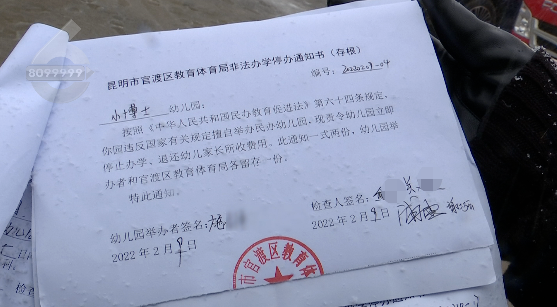 8099999
昆明市官渡区教育体育局非法办学停办通知书(存根)
编号:
小博士 幼儿园:
按照《中华人民共和国民办教育促进法》第六十四条规定,
你园违反国家有关规定擅自举办民办幼儿园,现责令幼儿园立即
停止办学、退还幼儿家长所收费用。此通知一式两份,幼儿园举
办者和官渡区教育体育局各留存一份。
特此通知。
幼儿园举办者签名:
检查人签名:
2022年2月9日
2022年2月9日
市官渡区教育体